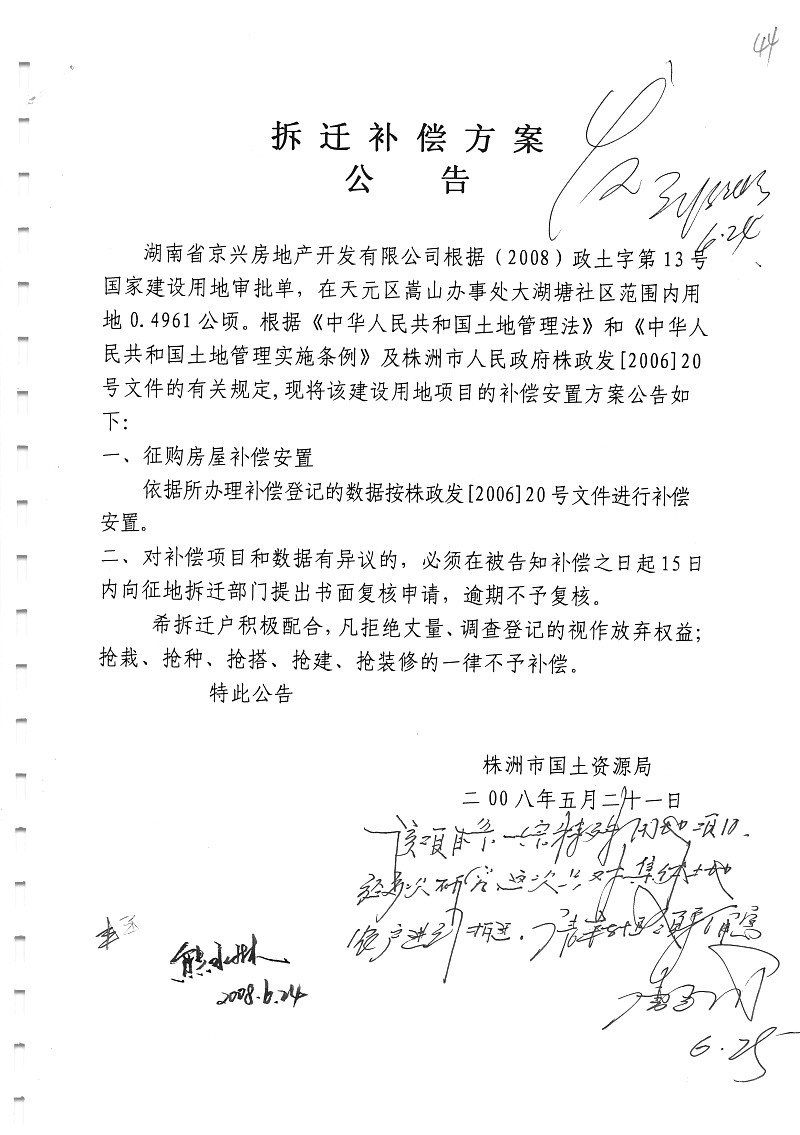 44
拆迁补偿方案
公 告
6.24
湖南省京兴房地产开发有限公司根据(2008)政土字第13号
国家建设用地审批单，在天元区嵩山办事处大湖塘社区范围内用
地0.4961公顷。根据《中华人民共和国土地管理法》和《中华人
民共和国土地管理实施条例》及株洲市人民政府株政发[2006]20
号文件的有关规定,现将该建设用地项目的补偿安置方案公告如
下:
一、征购房屋补偿安置
依据所办理补偿登记的数据按株政发[2006]20号文件进行补偿
安置。
二、对补偿项目和数据有异议的，必须在被告知补偿之日起15日
内向征地拆迁部门提出书面复核申请，逾期不予复核。
希拆迁户积极配合,凡拒绝丈量、调查登记的视作放弃权益;
抢栽、抢种、抢搭、抢建、抢装修的一律不予补偿。
特此公告
株洲市国土资源局
二00八年五月二十一日
该项目系一宗特殊用地项目.
研究,这次只对集体土地
户进行拆迁.
2008.6.24
6.25